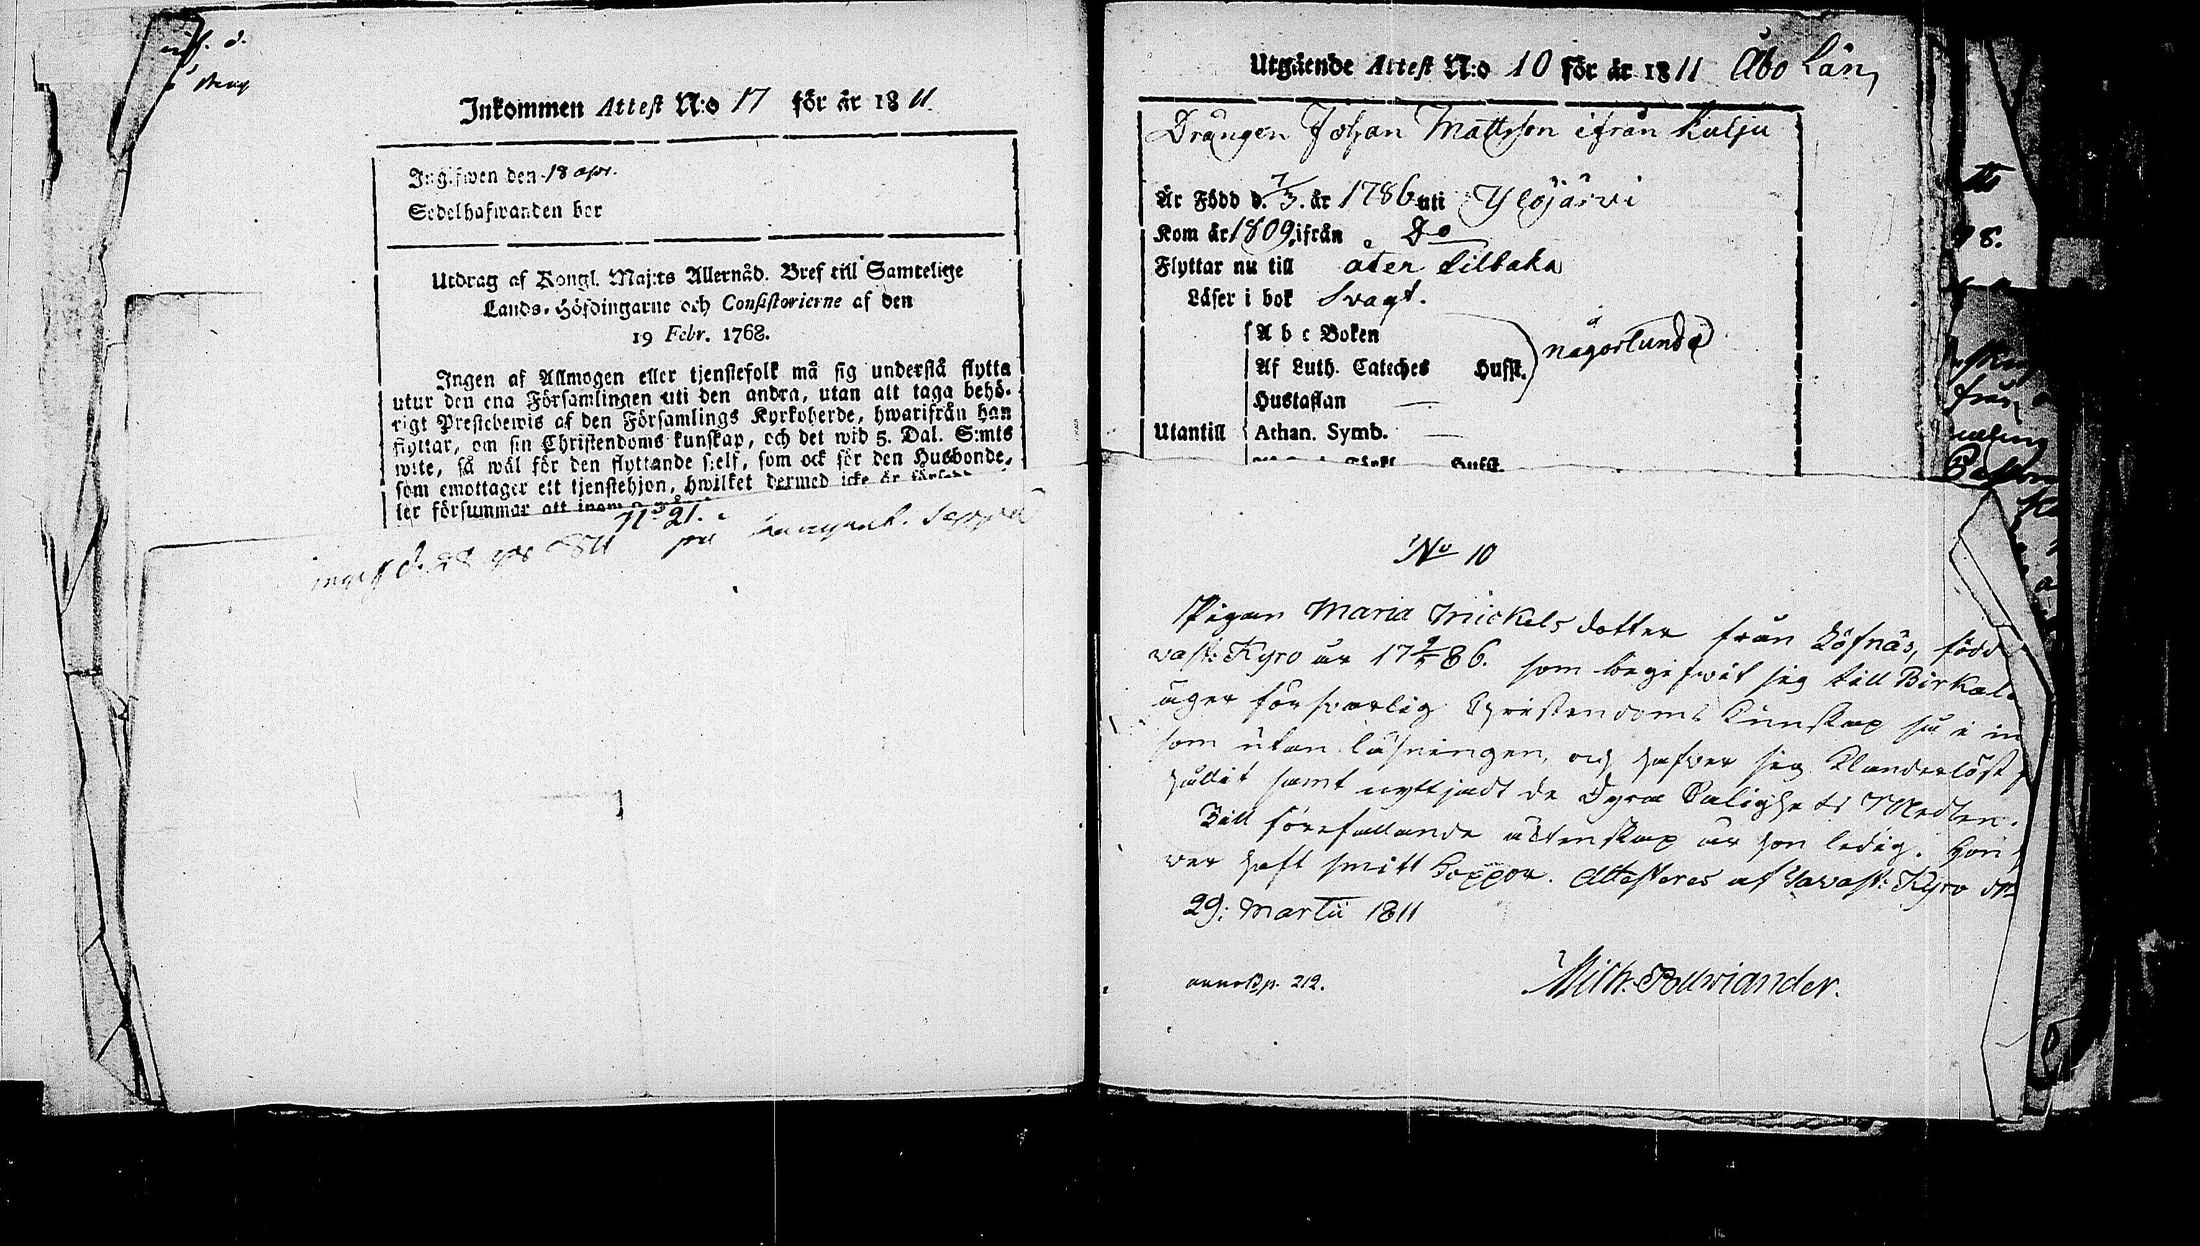 Inkommen Attest N:o 17 för år 1811.
Ingifwen den 18 apr.
Sedelhafwanden bor
Utdrag af Kongl. Maj:ts Allernåd. Bref till Samtelige
Lands-Höfdingarne och Consistorierne af den
19 Febr. 1768.
Ingen af Allmogen eller tjenstefolk må sig understå flytta
utur den ena Församlingen uti den andra, utan att taga behö-
rigt Prestebewis af den Församlings Kyrkoherde, hwarifrån han
flyttar, om sin Christendoms kunskap, och det wid 5. Dal. S:mts
wite, så wäl för den flyttande sielf, som ock för den Husbonde,
som emottager ett tjenstehjon, hwilket dermed icke är
ler försummar att inom
N:o 21.
1811
Utgående Attest N:o 10 för år 1811 Åbo Län,
Drängen Johan Mattsson ifrån Kulju
Är Född d. 7/3. år 1786 uti Ylöjärvi
Kom år 1809, ifrån Do
Flyttar nu till åter tilbaka
Läser i bok Svagt.
A b c Boken
Af Luth. Cateches Hufst. någorlunda
Hustaflan —
Utantill Athan. Symb. —
No 10
Pigan Maria Mickelsdotter från Löfnäs, född
vast: Kyro år 17 86. som begifwit sig till Birkal
äger försvarlig Christendoms Kunskap så i in
som utan läsningen, och hafver sig Klanderlöst
hållit samt nyttjadt de Dyra Salighets Medlen.
Till förefallande äktenskap är hon ledig. Hon
ver haft smitt Koppor. Attesteres af Tavast: Kyro d
29: Martii 1811
p. 212.